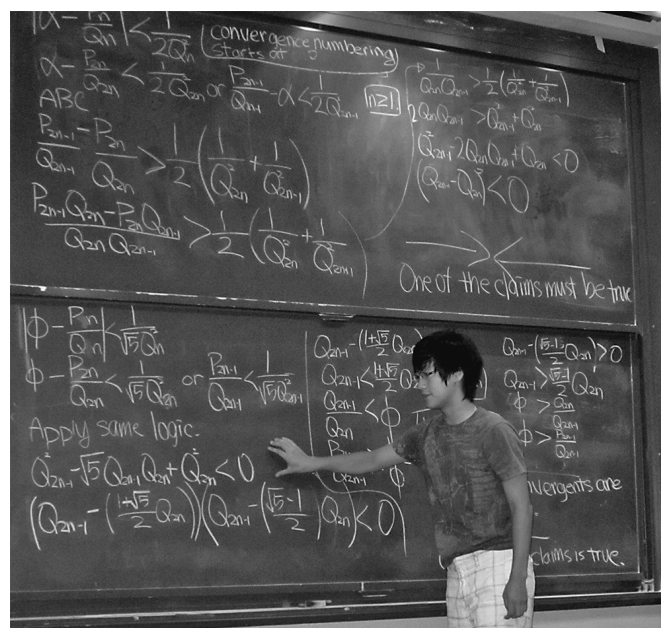 |α - Pn/Qn| < 1/2Q²n (convergence numbering starts at
α - P2n/Q2n < 1/2Q²2n or P2n-1/Q2n-1 - α < 1/2Q²2n-1 n≥1.
ABC
P2n-1/Q2n-1 - P2n/Q2n > 1/2 (1/Q²2n + 1/Q²2n-1)
P2n-1Q2n - P2nQ2n-1/Q2nQ2n-1 > 1/2 (1/Q²2n + 1/Q²2n-1)
1/Q2nQ2n-1 > 1/2 (1/Q²2n + 1/Q²2n-1)
2Q2nQ2n-1 > Q²2n-1 + Q²2n
Q²2n-1 - 2Q2nQ2n-1 + Q²2n < 0
(Q2n-1 - Q2n)² < 0
One of the claims must be true
|ϕ - Pn/Qn| < 1/√5Q²n
ϕ - P2n/Q2n < 1/√5Q²2n or P2n-1/Q2n-1 < 1/√5Q²2n-1
Apply same logic.
Q²2n-1 - √5Q2n-1Q2n + Q²2n < 0
(Q2n-1 - (1+√5/2 Q2n))(Q2n-1 - (√5-1/2)Q2n) < 0
Q2n-1 - (1+√5/2 Q2n)
Q2n-1 < 1+√5/2 Q2n
Q2n-1/Q2n < ϕ
Q2n-1 - (√5-1/2 Q2n) > 0
Q2n-1 > √5-1/2 Q2n
ϕ > Q2n/Q2n-1
ϕ > P2n-1/Q2n-1
nvergents are
claims is true.